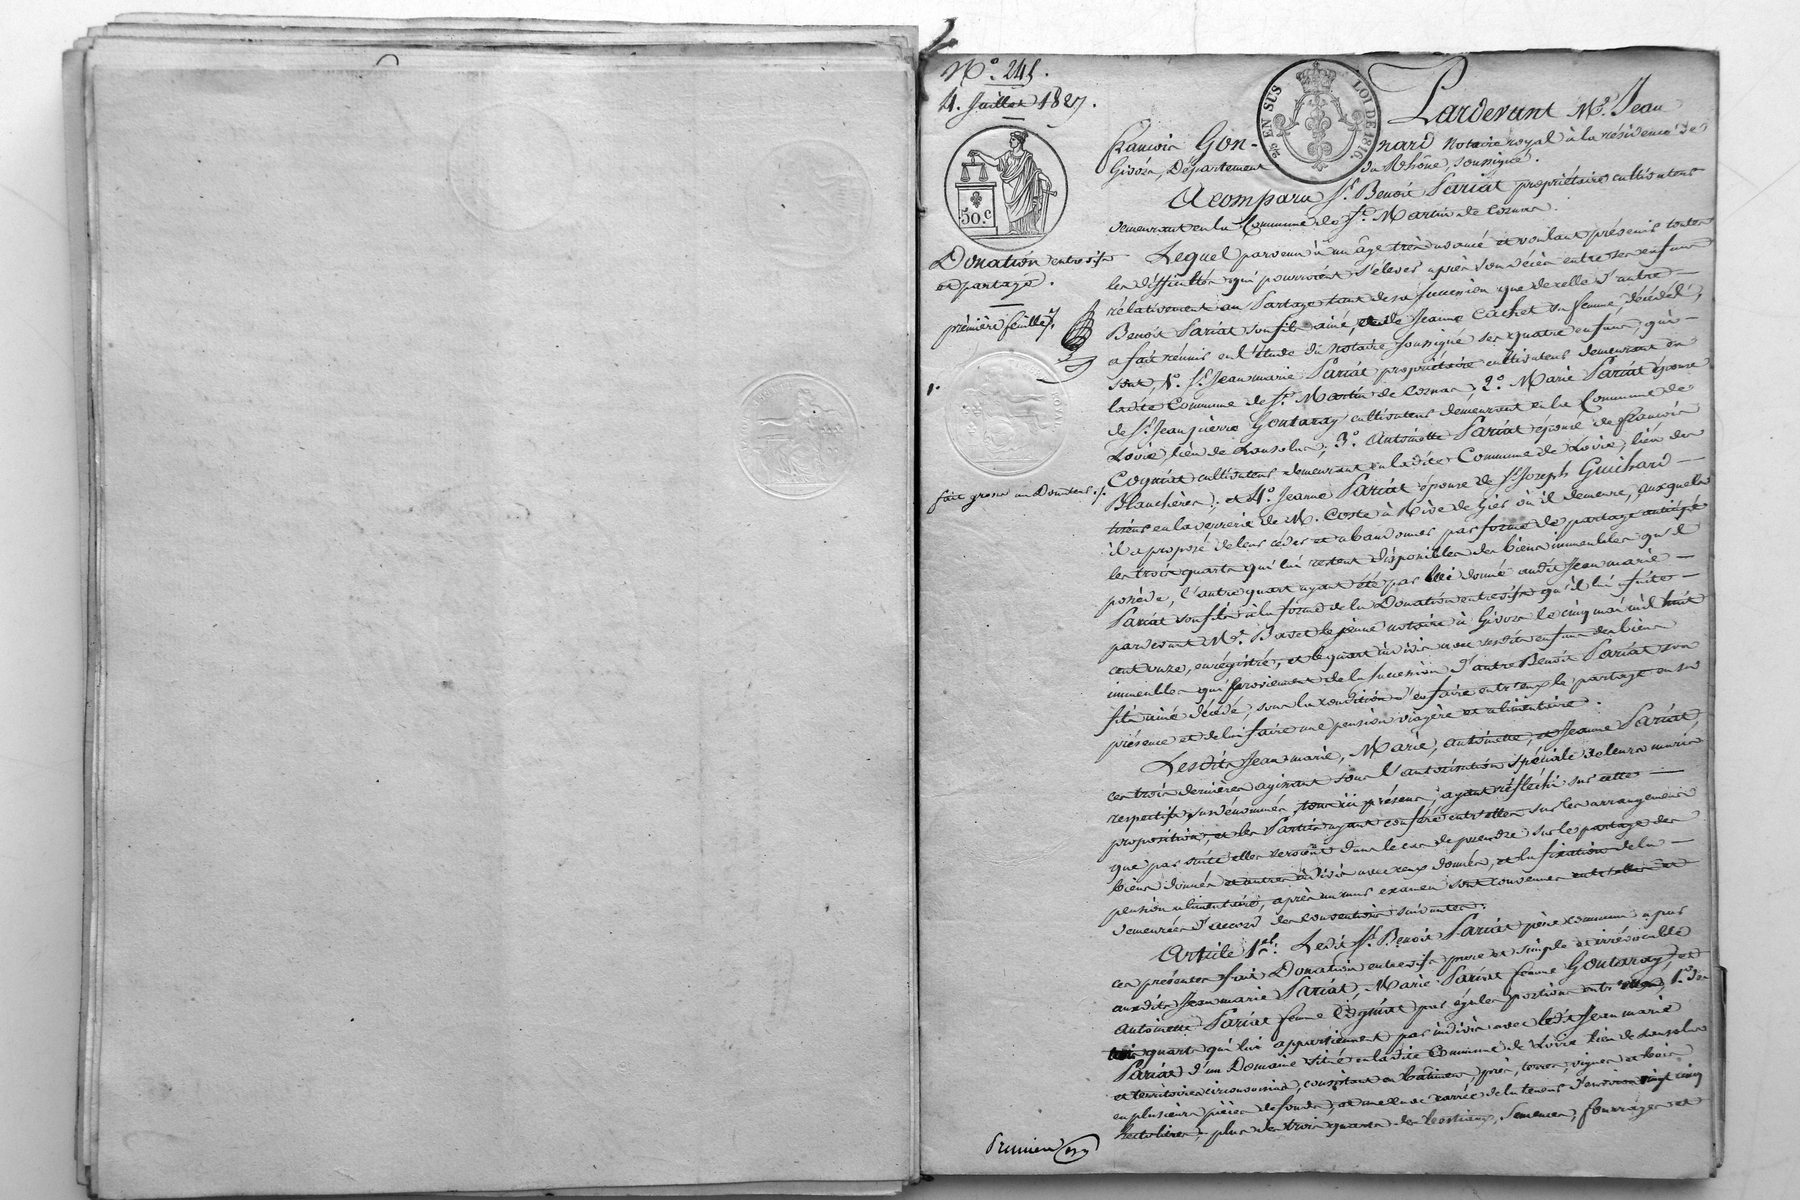 N.º 245.
4. Juillet 1827.
EN SUS
LOI DE 1816
50 c
Donation entrevifs
et partage.
première feuille
1.
fait grosse au Donateur
Pardevant M.e Jean
françois Gonnard notaire royal à la résidence de
Givors, Département du Rhône, soussigné.
A comparu S.r Benoit Pariat propriétaire cultivateur
demeurant en la Commune de S.t Martin de Cornas.
Lequel parvenu à un âge très avancé et voulant prévenir toutes
les difficultés qui pourroient s'élever après son décès entre ses enfans
rélativement au Partage tant de sa succession que de celle d'autre
Benoit Pariat son fils ainé, et de Jeanne Cachet sa femme, décédés,
a fait réunir en l'étude du notaire soussigné ses quatre enfans, qui
sont, 1.º S.r Jean marie Pariat propriétaire cultivateur demeurant en
ladite Commune de S.t Martin de Cornas; 2.º Marie Pariat épouse
de S.r Jean pierre Gontaray cultivateur demeurant en la Commune de
Loire, lieu de 3.º Antoinette Pariat épouse de françois
Cogniat cultivateur demeurant en ladite Commune de Loire, lieu des
Blanchères; et 4.º Jeanne Pariat épouse de S.r Joseph Guichard
tireur en la verrerie de M. Coste à Rive de Gier où il demeure, auxquels
il a proposé de leur céder et abandonner par forme de partage anticipé
les trois quarts qui lui restent disponibles des biens immeubles qu'il
possède, l'autre quart ayant été par lui donné audit Jean marie
Pariat son fils à la forme de la Donation entrevifs qu'il lui fit
pardevant M.e le jeune notaire à Givors le cinq mai mil huit
cent onze, enrégistrée, et le quart indivis avec sesdits enfans des biens
immeubles qui proviennent de la succession d'autre Benoit Pariat son
fils ainé décédé, sous la condition d'en faire entr'eux le partage en sa
présence et de lui faire une pension viagère et alimentaire.
Lesdits Jean marie, Marie, Antoinette, et Jeanne Pariat,
ces trois dernières agissant sous l'autorisation spéciale de leurs maris
respectifs susdénommés, tous ici présens, ayant réfléchi sur cette
proposition, et les Parties ayant conféré entr'elles sur les arrangemens
que par suite elles seroient dans le cas de prendre sur le partage des
biens donnés et autres indivis avec ceux donnés, et la fixation de la
pension alimentaire, après un mur examen sont convenues entr'elles et
demeurées d'accord des conventions suivantes:
Article 1.er Ledit S.r Benoit Pariat père commun a par
ces présentes fait Donation entrevifs pure et simple et irrévocable
auxdits Jean marie Pariat, Marie Pariat femme Gontaray, et
Antoinette Pariat femme Cogniat par égales portions entr'eux, 1.º des
trois quarts qui lui appartiennent par indivis avec ledit Jean marie
Pariat d'un Domaine situé en ladite Commune de Loire lieu de
et territoires circonvoisins, consistant en bâtimens, prés, terres, vignes et bois
en plusieurs pièces de fonds, et une cuve carrée de la teneur d'environ vingt cinq
hectolitres, plus des trois quarts des bestiaux, semences, fourrages et
Première